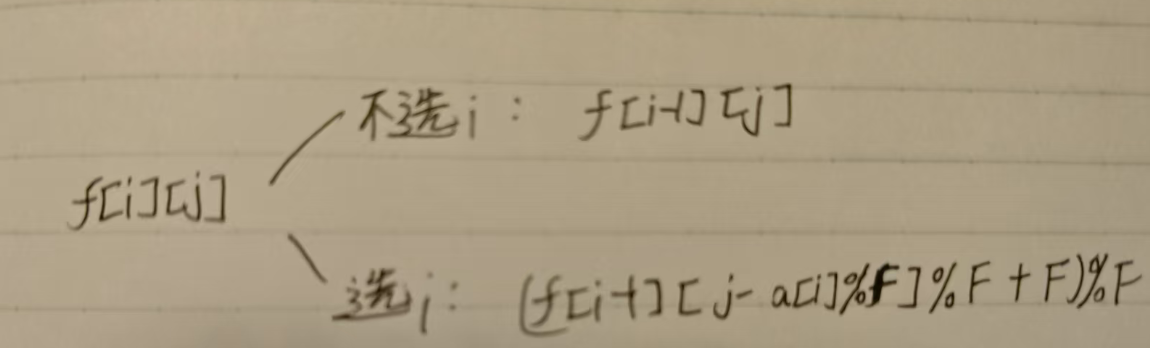 不选i： f[i-1][j]
f[i][j]
选i： (f[i-1][j-a[i]%F]%F+F)%F